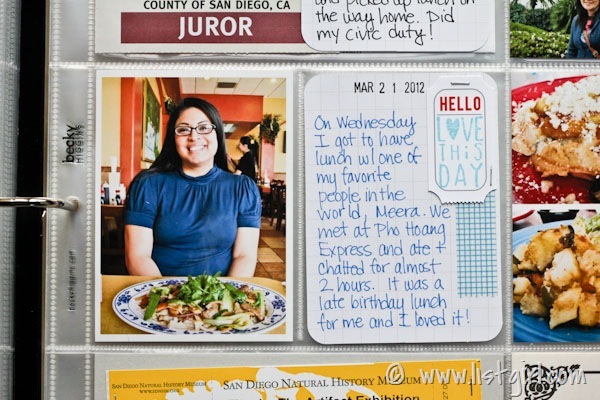 COUNTY OF SAN DIEGO, CA
JUROR
and picked up lunch on
the way home. Did
my civic duty!
becky
HIGGINS
beckyhiggins.com
MAR 21 2012
HELLO
LOVE
THIS
DAY
On Wednesday
I got to have
lunch w/ one of
my favorite
people in the
world, Meera. We
met at Pho Hoang
Express and ate +
chatted for almost
2 hours. It was a
late birthday lunch
for me and I loved it!
SAN DIEGO NATURAL HISTORY MUSEUM
SAN DIEGO NATURAL HISTORY MUSEUM
The Artifact Exhibition
© www.listgirl.com